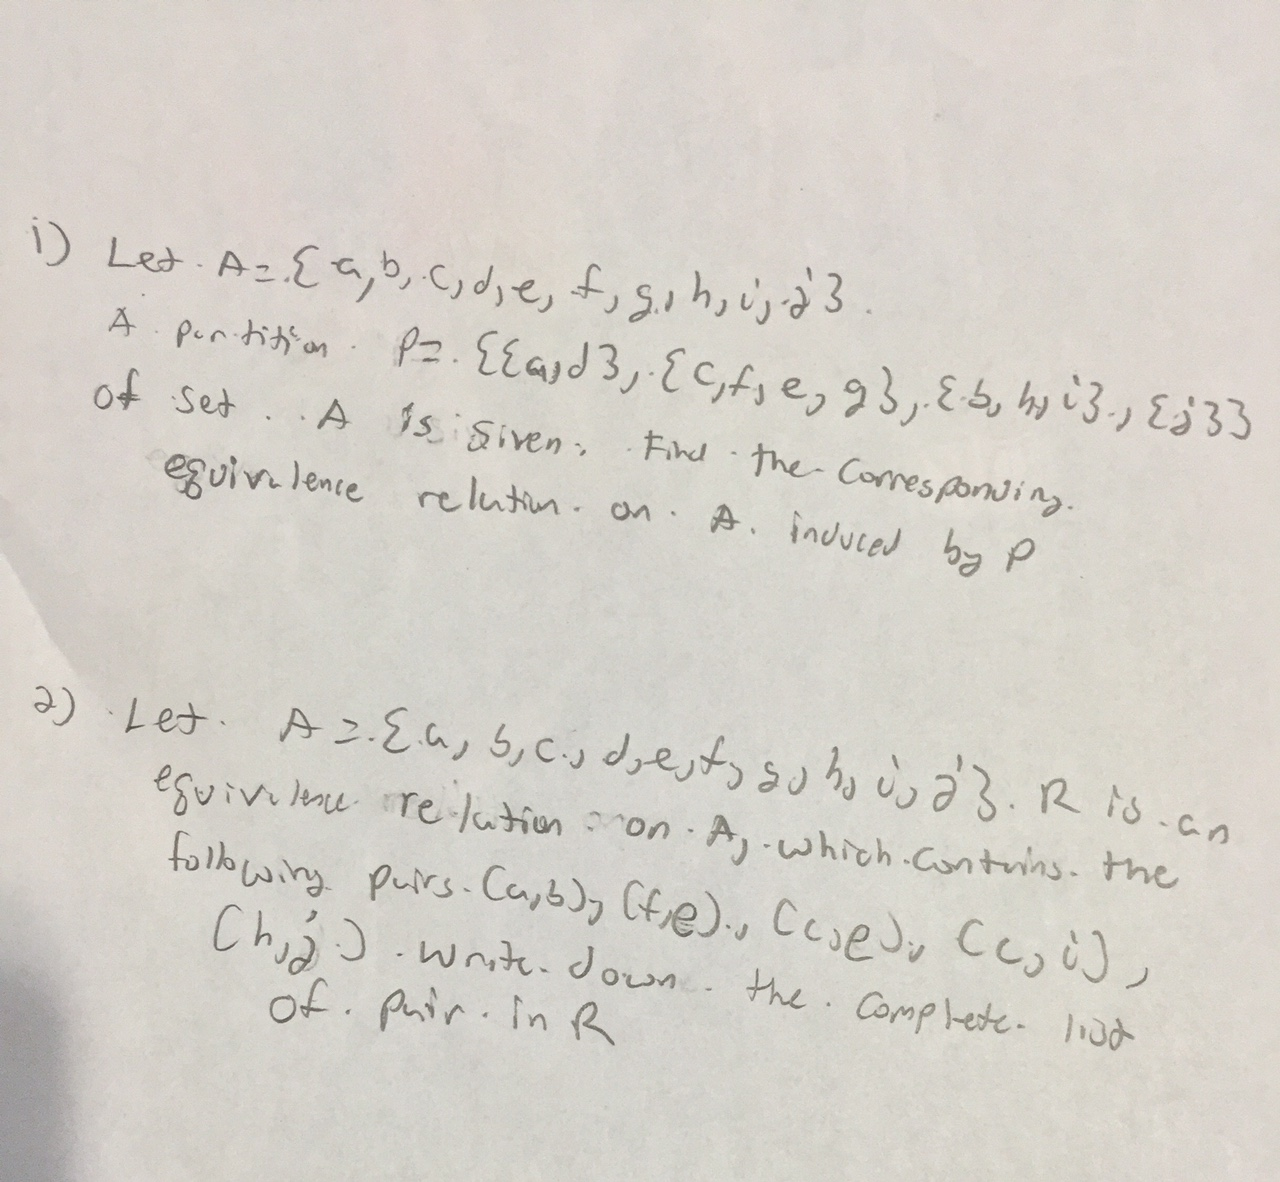 1) Let A = {a, b, c, d, e, f, g, h, i, j}.
A partition P = {{a, d}, {c, f, e, g}, {b, h, i}, {j}}
of set A is given. Find the corresponding
equivalence relation on A induced by P
2) Let A = {a, b, c, d, e, f, g, h, i, j}. R is an
equivalence relation on A, which contains the
following pairs (a,b), (f,e), (c,e), (c,i),
(h,j). write down the complete list
of pair in R